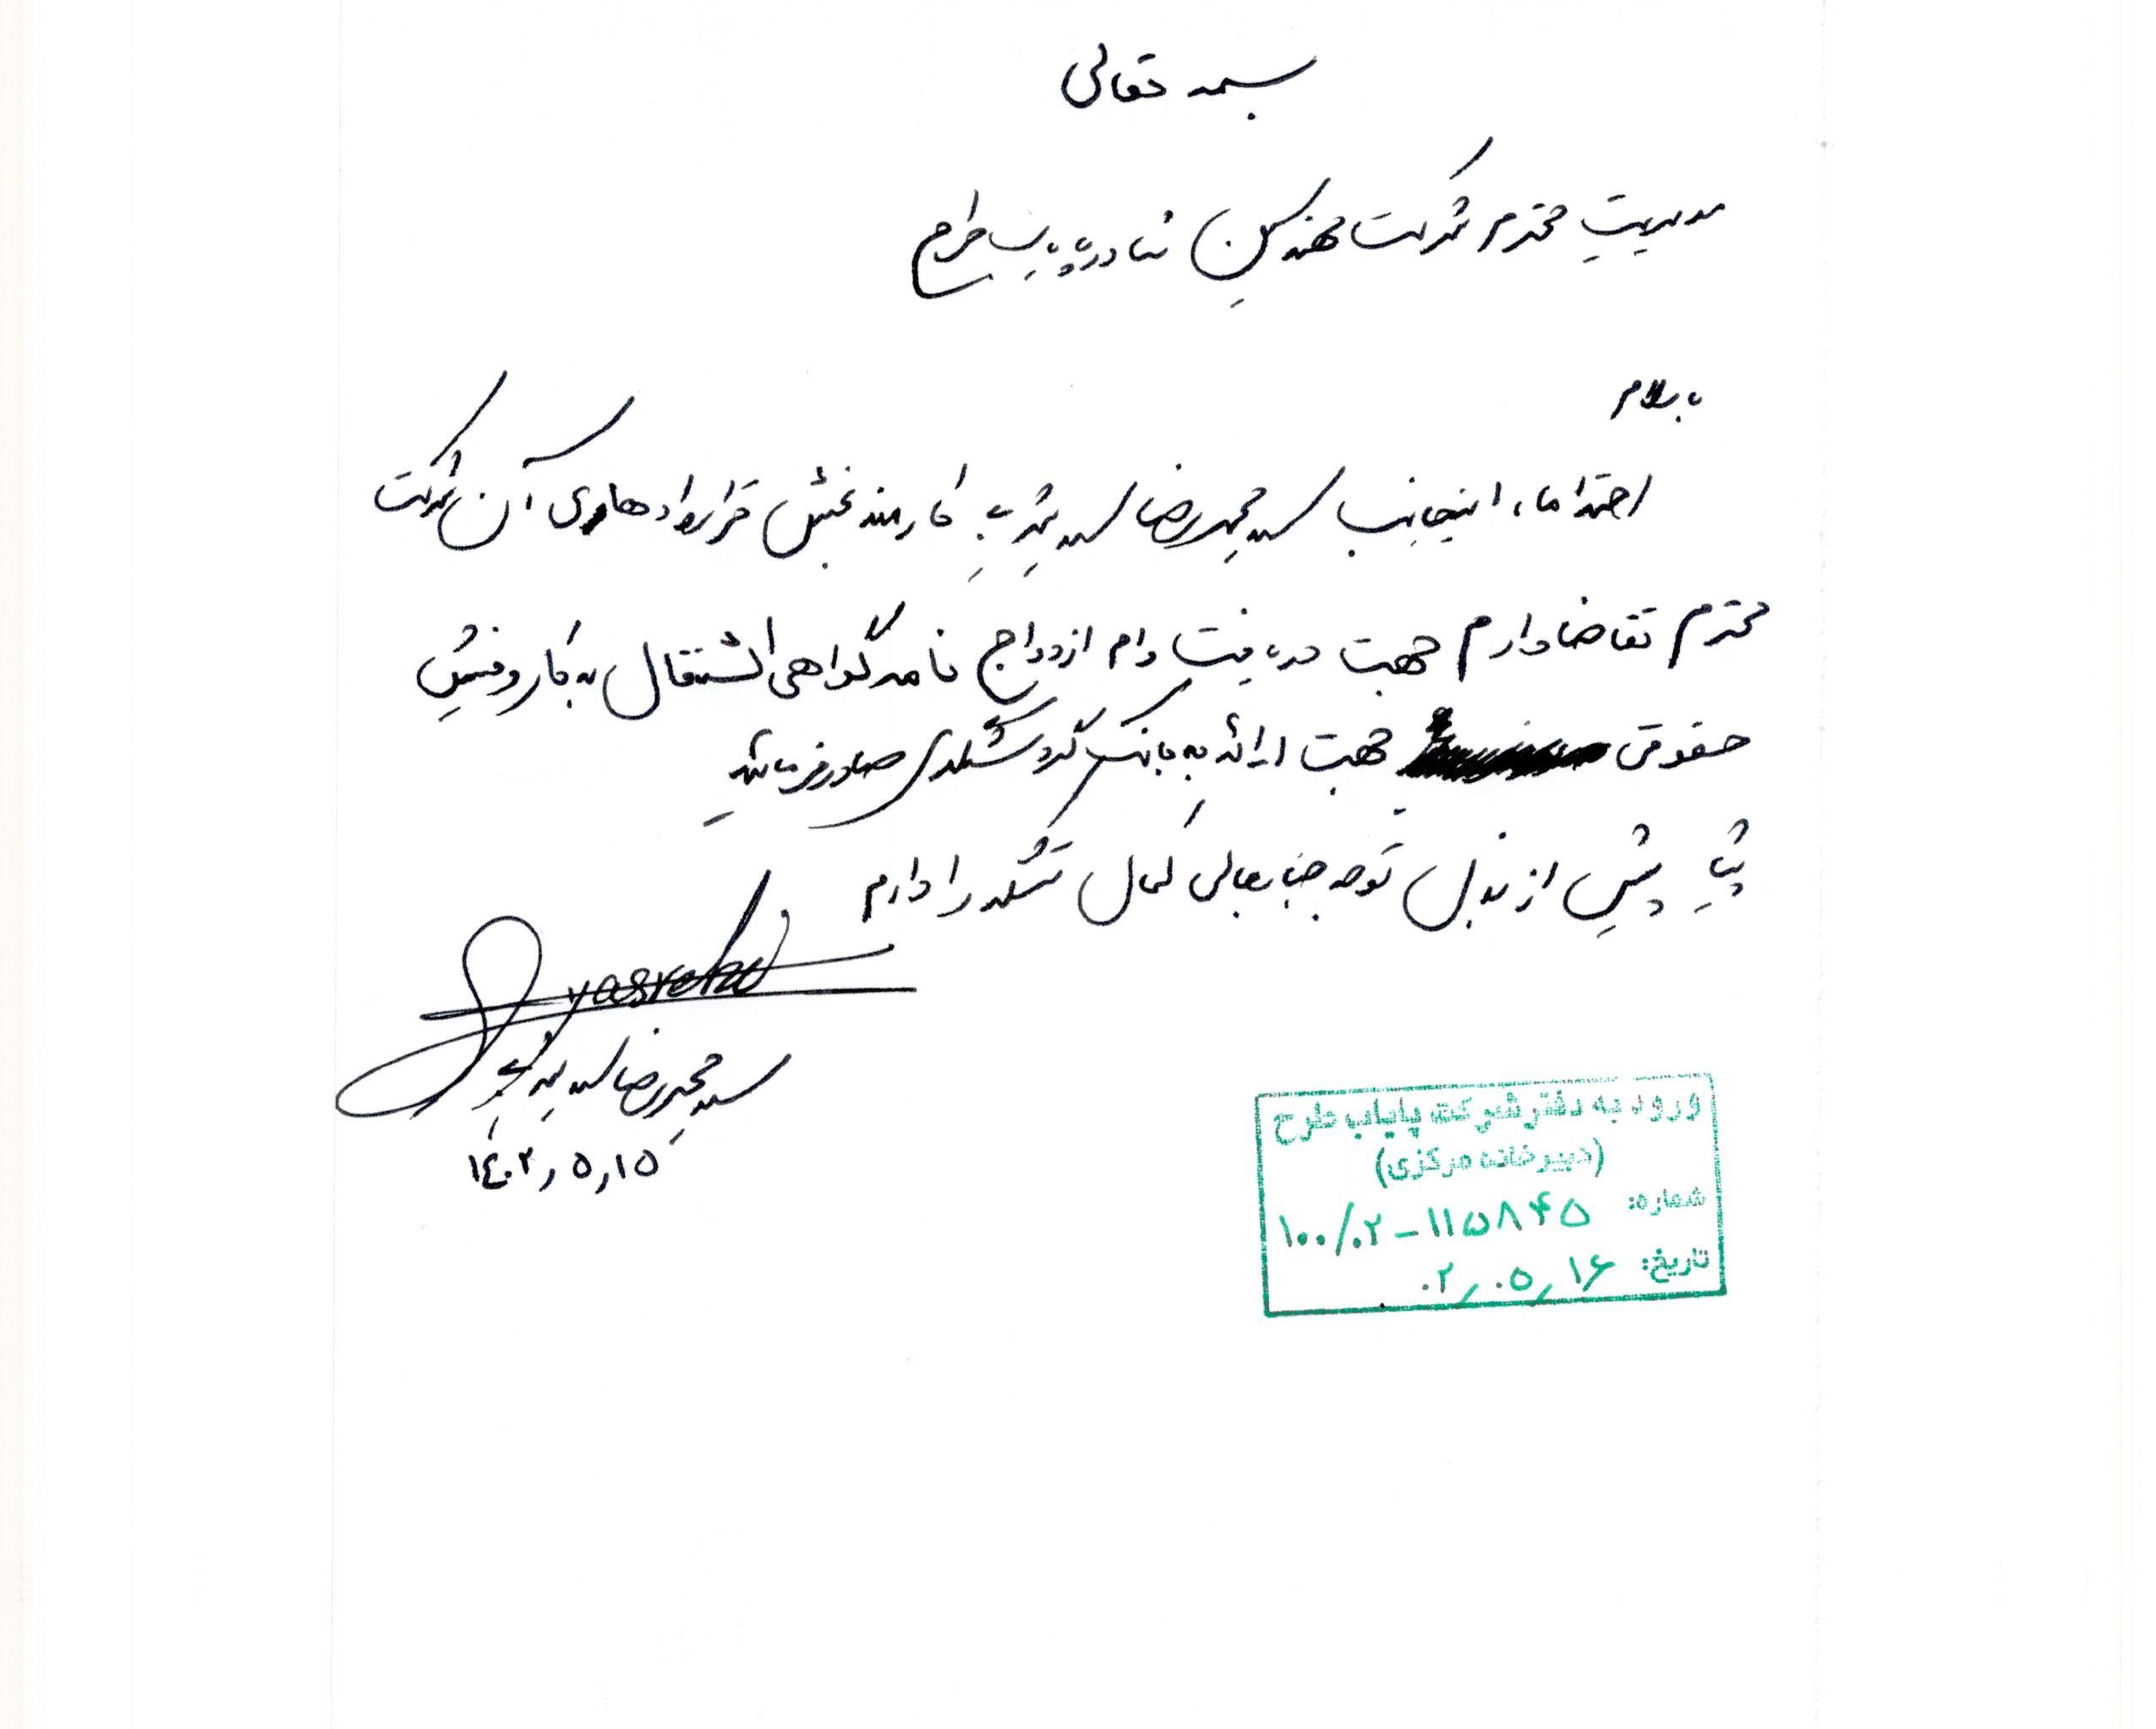 بسمه تعالی
مدیریت محترم شرکت مهندسین مشاور پایاب طرح
با سلام
احتراما، اینجانب سید محمدرضا سید یثربی کارمند بخش قراردادهای آن شرکت
محترم تقاضا دارم جهت دریافت وام ازدواج نامه گواهی اشتغال به کار و فیش
حقوقی جهت ارائه به بانک گردشگری صادر فرمائید
پیشاپیش از بذل توجه جنابعالی کمال تشکر را دارم
سید محمدرضا سید یثربی
۱۴۰۲٫۵٫۱۵
ورود به دفتر شرکت پایاب طرح
(دبیرخانه مرکزی)
شماره: ۱۰۰/۰۲-۱۱۵۸۴۵
تاریخ: ۰۲٫۰۵٫۱۶